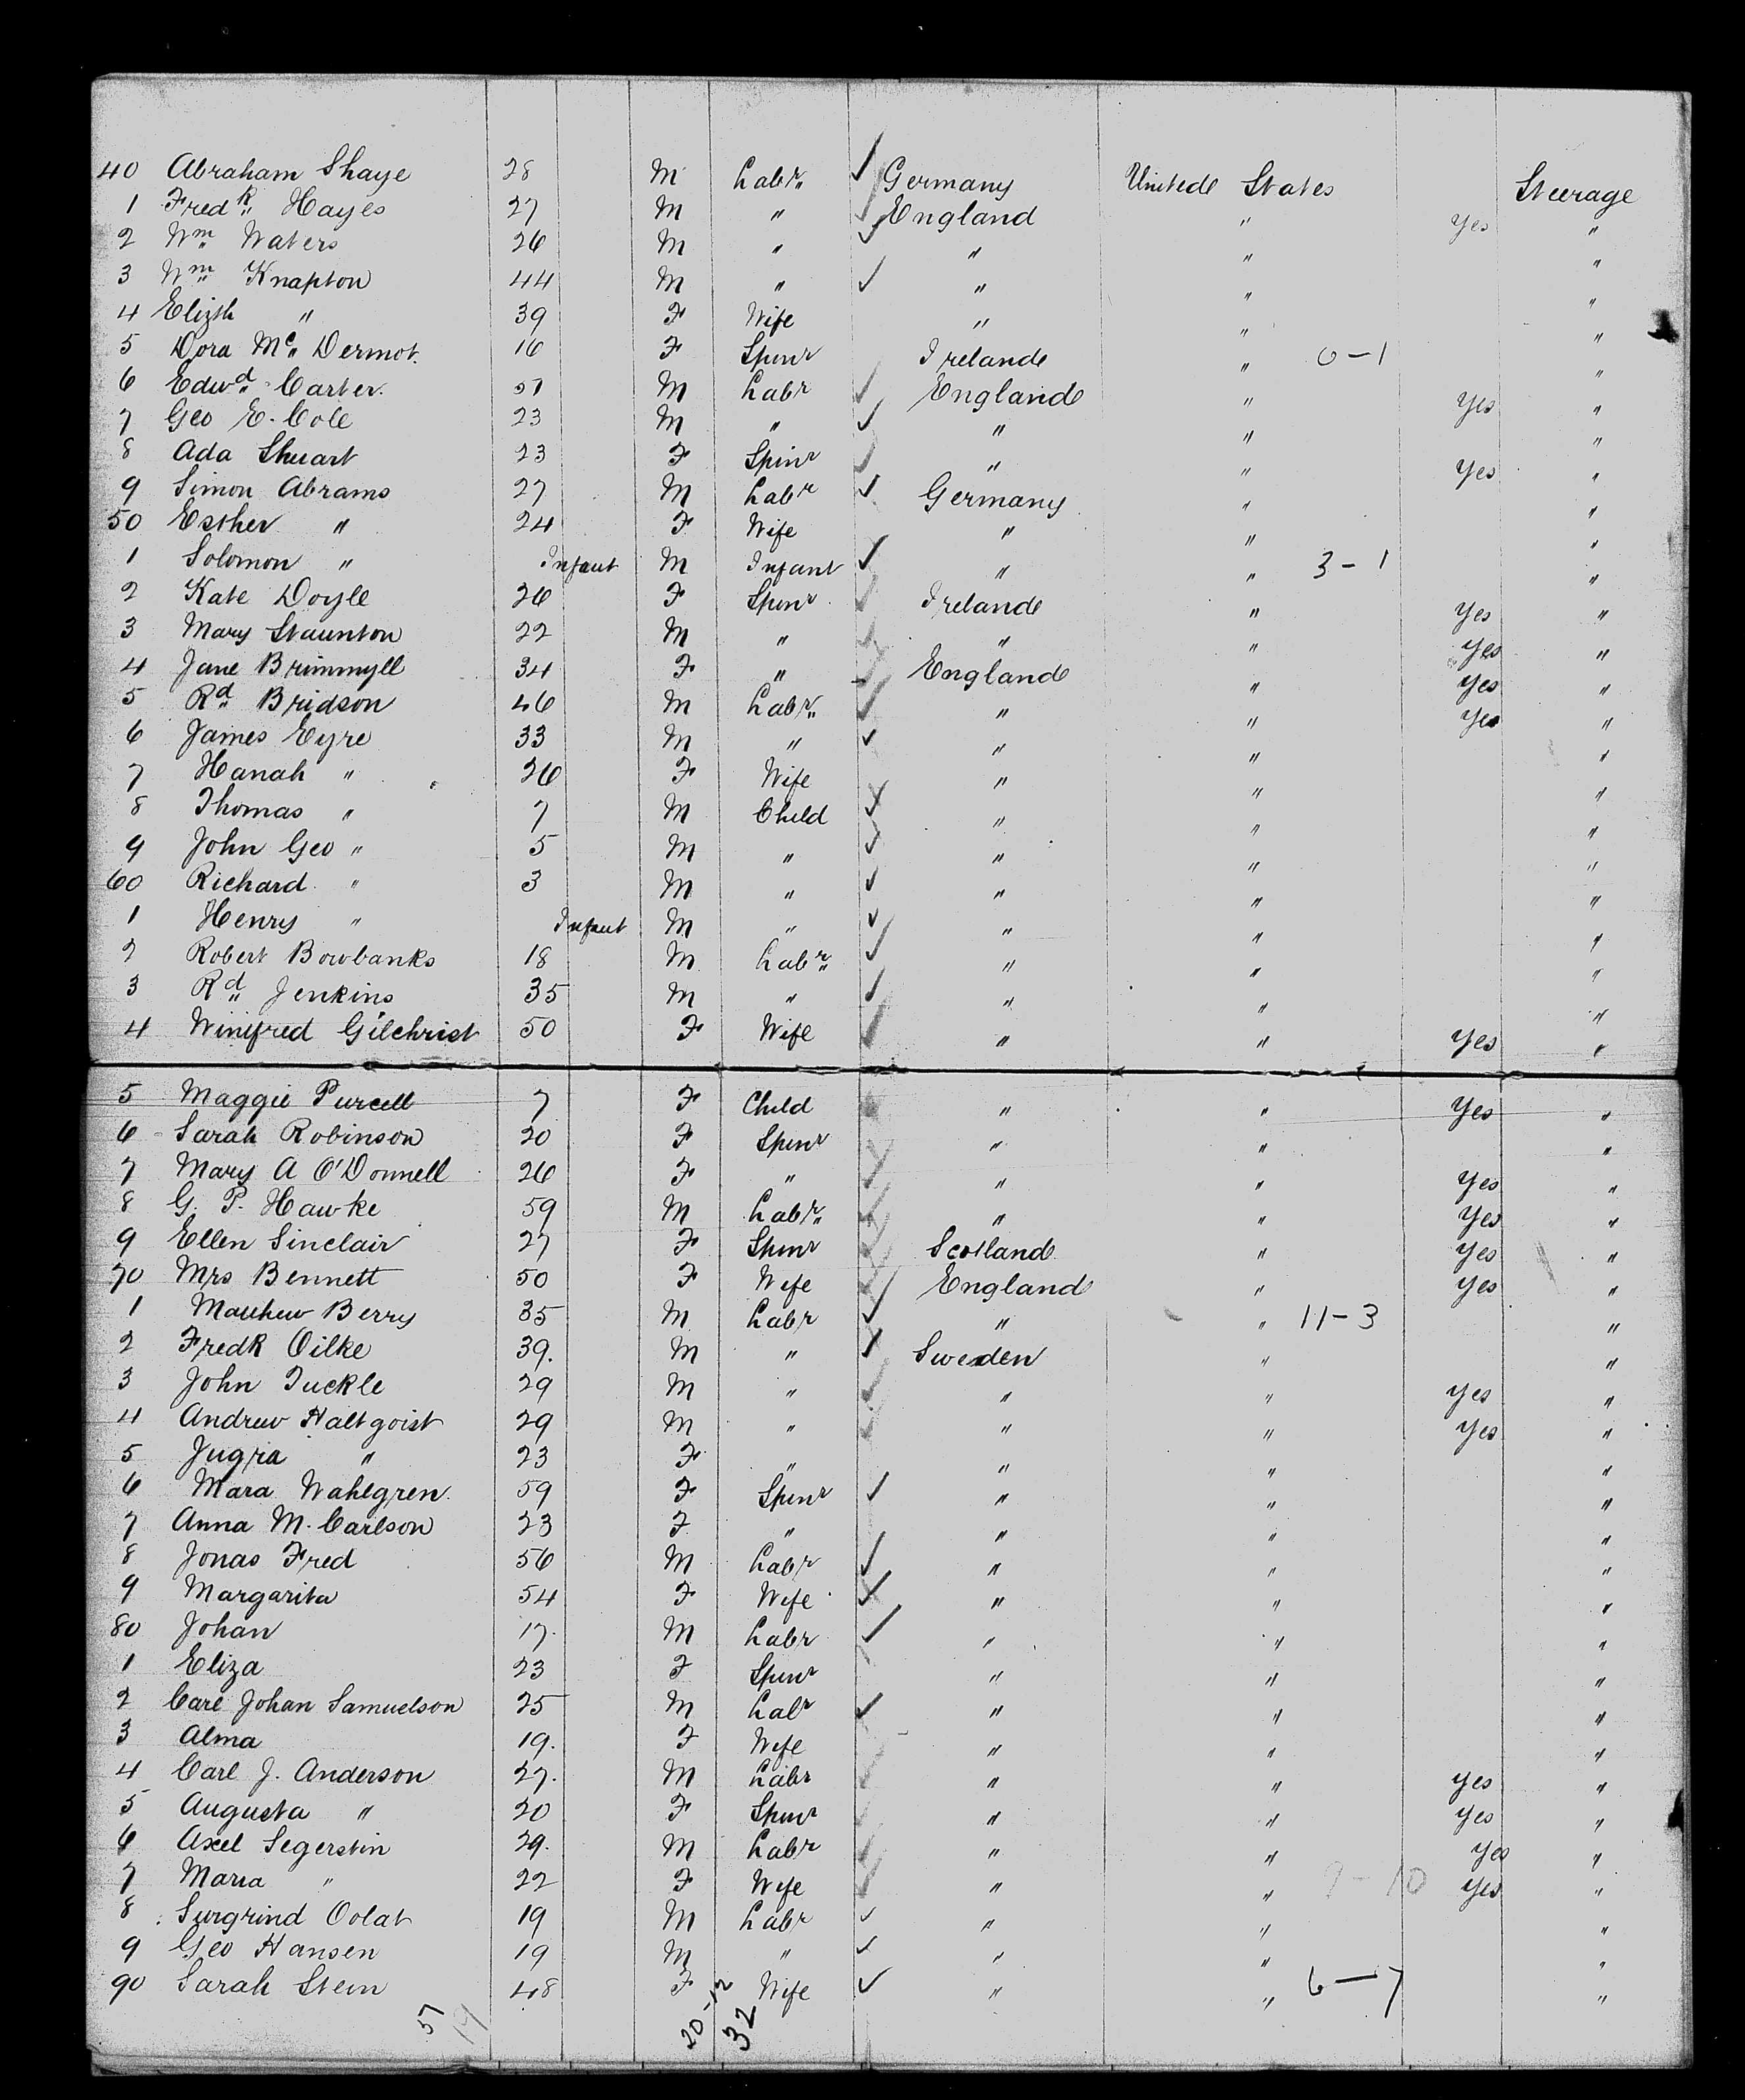 40 Abraham Shaye 28 M Labr. Germany United States Steerage
1 Fredk. Hayes 27 M " England " Yes "
2 Wm. Waters 26 M " " " "
3 Wm. Knapton 44 M " " " "
4 Elizth " 39 F Wife " " "
5 Dora Mc. Dermot. 16 F Spinr Ireland " 0-1 "
6 Edwd. Carter. 51 M Labr England " Yes "
7 Geo E. Cole 23 M " " " "
8 Ada Stuart 23 F Spinr " " Yes "
9 Simon Abrams 27 M Labr Germany " "
50 Esther " 24 F Wife " " "
1 Solomon " Infant M Infant " " 3-1 "
2 Kate Doyle 26 F Spinr Ireland " Yes "
3 Mary Staunton 22 M " " " Yes "
4 Jane Brimmyll 34 F " England " Yes "
5 Rd. Bridson 46 M Labr. " " Yes "
6 James Eyre 33 M " " " "
7 Hanah " 26 F Wife " " "
8 Thomas " 7 M Child " " "
9 John Geo " 5 M " " " "
60 Richard " 3 M " " " "
1 Henry " Infant M " " " "
2 Robert Bowbanks 18 M Labr. " " "
3 Rd. Jenkins 35 M " " " "
4 Winifred Gilchrist 50 F Wife " " Yes "
5 Maggie Purcell 7 F Child " " Yes "
6 Sarah Robinson 20 F Spinr " " "
7 Mary A O'Donnell 26 F " " " Yes "
8 G. P. Hawke 59 M Labr. " " Yes "
9 Ellen Sinclair 27 F Spinr Scotland " Yes "
70 Mrs Bennett 50 F Wife England " Yes "
1 Matthew Berry 35 M Labr " " 11-3 "
2 Fredk Oilke 39. M " Sweden " "
3 John Tuckle 29 M " " " Yes "
4 Andrew Haltgoist 29 M " " " Yes "
5 Jugra " 23 F " " " "
6 Mara Wahlgren. 59 F Spinr " " "
7 Anna M. Carlson 23 F " " " "
8 Jonas Fred 56 M Labr " " "
9 Margarita 54 F Wife " " "
80 Johan 17. M Labr " " "
1 Eliza 23 F Spinr " " "
2 Carl Johan Samuelson 25 M Labr " " "
3 Alma 19. F Wife " " "
4 Carl J. Anderson 27. M Labr " " Yes "
5 Augusta " 20 F Spinr " " Yes "
6 Axel Segerstin 29. M Labr " " Yes "
7 Maria " 22 F Wife " " 9-10 Yes "
8 Surgrind Oolat 19 M Labr " " "
9 Geo Hansen 19 M " " " "
90 Sarah Stein 48 F Wife " " 6-7 "
51 20-12 32